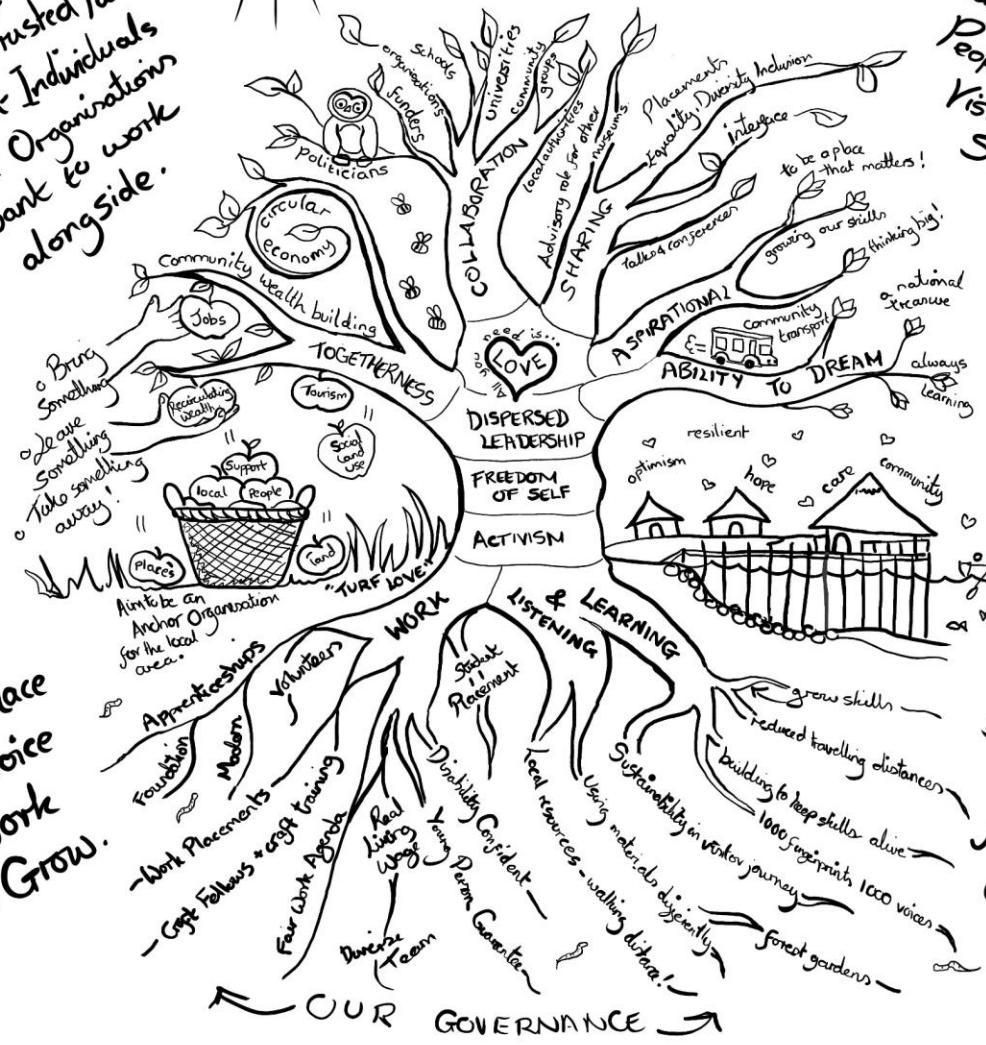 trusted
Individuals
Organisations
want to work
alongside.
Schools
Universities
organisations
funders
community
groups
politicians
COLLABORATION
Local authorities
Advisory role for other
museums.
SHARING
Placements
Equality, Diversity Inclusion
Interface
Talks & conferences
to be a place
that matters!
growing our skills
thinking big!
ASPIRATIONAL
a national
treasure
community
transport
ABILITY TO DREAM
always
learning
circular
economy
Community wealth building
TOGETHERNESS
Jobs
Recirculating
wealth
Tourism
Social
land
use
Support
local
People
Places
land
o Bring
something
o Leave
something
o Take something
away!
"TURF LOVE"
Aim to be an
Anchor Organisation
for the local
area.
All you need is...
LOVE
DISPERSED
LEADERSHIP
FREEDOM
OF SELF
ACTIVISM
resilient
optimism
hope
care
community
WORK
LISTENING & LEARNING
Apprenticeships
Foundation
Modern
Volunteers
Work Placements
Craft Fellows + craft training
Fair Work Agenda
Real
Living
Wage
Diverse
Team
Young Person Guarantee
Disability Confident
Student
Placement
Local resources - walking distance!
Using materials differently
forest gardens
Sustainability in visitor journey
1000 fingerprints 1000 voices
building to keep skills alive
reduced travelling distances
grow skills
Grow.
OUR GOVERNANCE